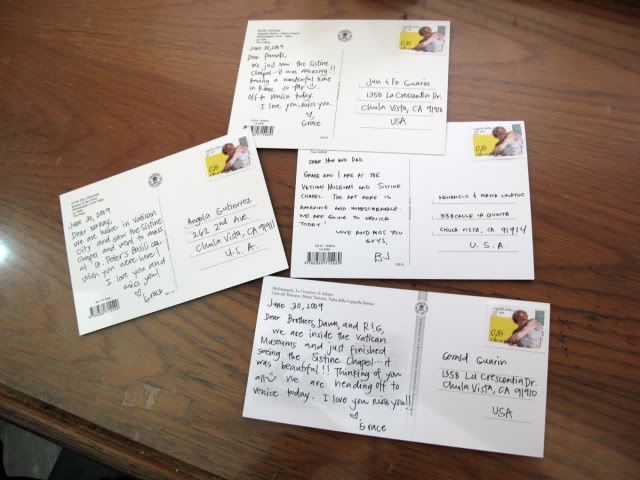 June 30, 2009
Dear Parents,
We just saw the Sistine
Chapel...it was amazing!!
Having a wonderful time
in Rome so far
Off to Venice today.
I love you, miss you.
Grace
0,85
Jun & Fe Guarin
1358 La Crescentia Dr.
Chula Vista, CA 91910
USA
June 30, 2009
Dear Nanay,
We are here in Vatican
City and saw the Sistine
Chapel and went to mass
at St. Peter's Basilica.
Wish you were here!
I love you and
miss you!
Grace
Angela Gutierrez
262 2nd Ave.
Chula Vista, CA 91910
U.S.A.
Dear Mom and Dad,
Grace and I are at the
Vatican Museums and Sistine
Chapel. The art here is
amazing and indescribable.
We are going to Venice
today!
Love and miss you
guys,
BJ
0,85
338 Calle La Quinta
Chula Vista, CA 91914
U.S.A.
Michelangelo, La Creazione di Adamo
June 30, 2009
Dear Brothers, Dawn, and R&G,
we are inside the Vatican
Museums and just finished
seeing the Sistine Chapel...it
was beautiful!! Thinking of you
all We are heading off to
Venice today. I love you miss you!!
Grace
Gerald Guarin
1358 La Crescentia Dr.
Chula Vista, CA 91910
USA